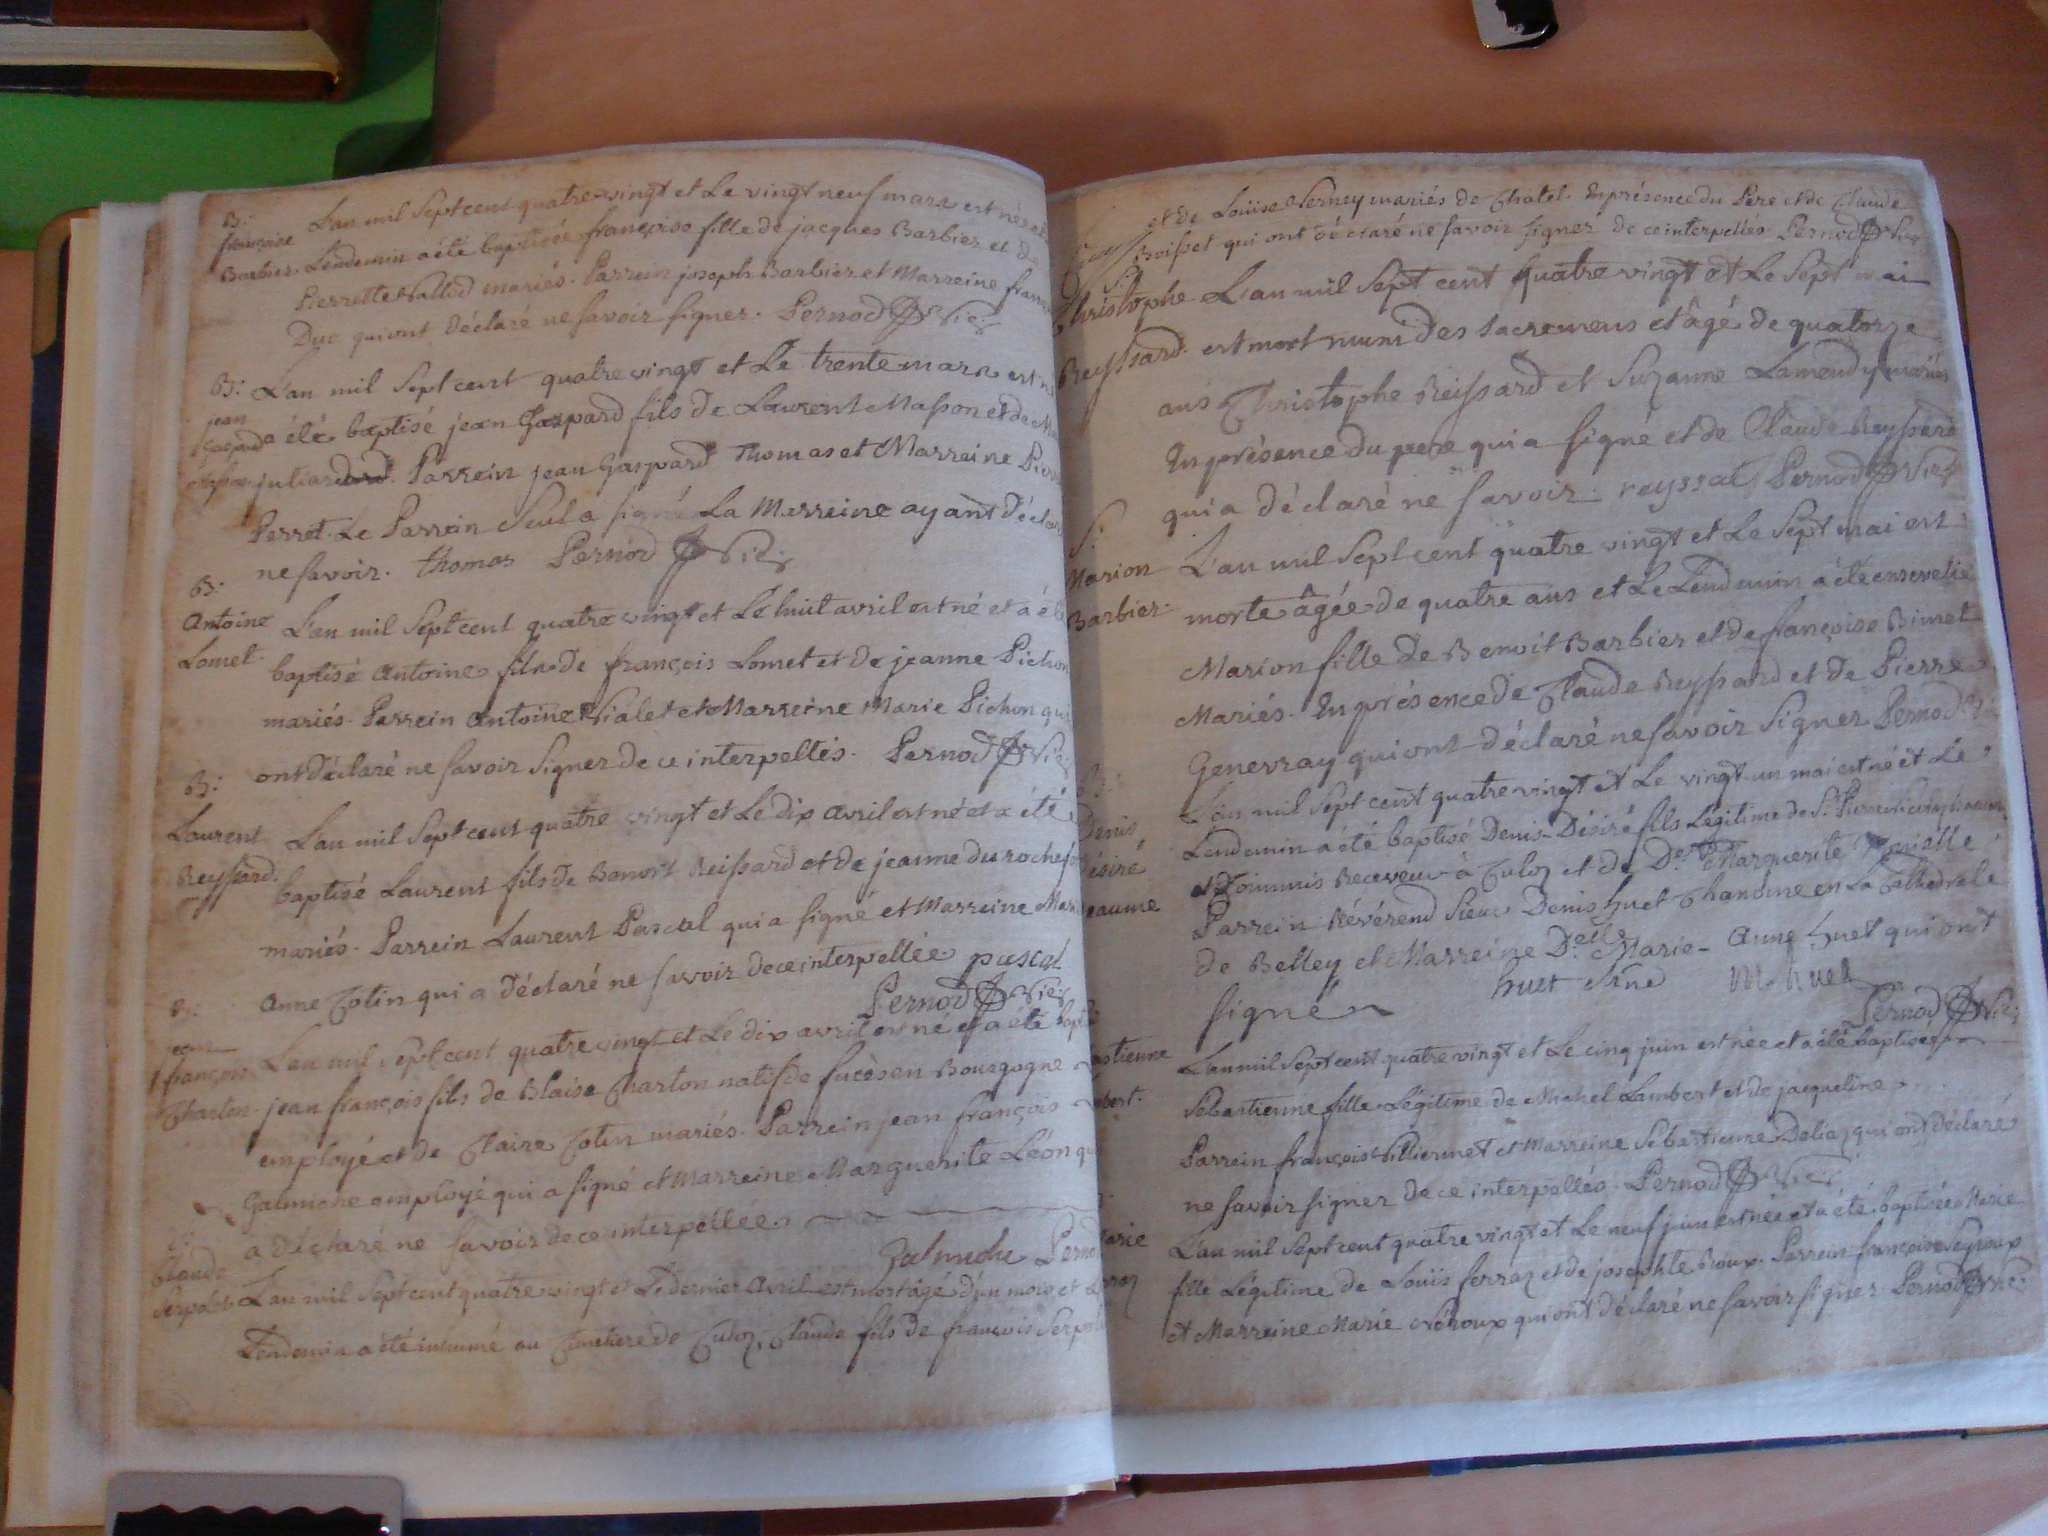 B:
françoise
Barbier
L'an mil Sept cent quatre vingt et Le vingt neuf mars est née et
Lendemain a été baptisée françoise fille de jacques Barbier et de
Pierrette mariés. Parrein joseph Barbier et Marreine
Duc qui ont déclaré ne savoir signer. Pernod Vic:
B:
jean
Gaspard
L'an mil Sept cent quatre vingt et Le trente mars est
a été baptisé jean Gaspard fils de Laurent Masson et de
juliard. Parrein jean Gaspard Thomas et Marreine
Perret. Le Parrein Seul a signé La Marreine ayant
ne savoir. thomas Pernod Vic:
B:
Antoine
Lomet.
L'an mil Sept cent quatre vingt et Le huit avril est né et a
baptisé Antoine fils de françois Lomet et de jeanne Pichon
mariés. Parrein Antoine Vialet et Marreine Marie Pichon qui
ont déclaré ne savoir Signer de ce interpellés. Pernod Vic:
B:
Laurent
Reyssard.
L'an mil Sept cent quatre vingt et Le dix avril est né et a été
baptisé Laurent fils de Benoit Reissard et de jeanne
mariés. Parrein Laurent Pascal qui a signé et Marreine
Anne Cotin qui a déclaré ne savoir de ce interpellée pascal
Pernod Vic:
B:
jean
françois
Charton.
L'an mil Sept cent quatre vingt et Le dix avril est né et a été
jean françois fils de Blaise Charton natif de en Bourgogne
employé et de Claire Cotin mariés. Parrein jean françois
Galmiche employé qui a signé et Marreine Marguerite Léon
a déclaré ne savoir de ce interpellée.
Galmiche
S:
Claude
Serpolet
L'an mil Sept cent quatre vingt et Le dernier Avril est mort âgé d'un mois et
Lendemain a été inhumé au Cimetiere de Culoz, Claude fils de françois
et de Loüise Verney mariés de Chatel. En présence du Pere et de Claude
Boisset qui ont déclaré ne savoir signer de ce interpellés Pernod Vic:
S:
Christophe
Reyssard.
L'an mil Sept cent quatre vingt et Le Sept mai
est mort muni des Sacremens et âgé de quatorze
ans Christophe Reissard et Suzanne Lamendy mariés
En présence du pere qui a signé et de Claude Reyssard
qui a déclaré ne savoir. Pernod Vic:
S:
Marion
Barbier.
L'an mil Sept cent quatre vingt et Le Sept mai est
morte âgée de quatre ans et Le Lendemain a été ensevelie
Marion fille de Benoit Barbier et de françoise Bimet
Mariés. En présence de Claude Reyssard et de Pierre
Genevray qui ont déclaré ne savoir Signer Pernod
B:
Denis
L'an mil Sept cent quatre vingt et Le vingt un mai est né et Le
Lendemain a été baptisé Denis-Désiré fils Légitime de Sr.
Receveur à Culoz et de Marguerite
Parrein Révérend Sieur Denis huet Chanoine en La Cathedrale
de Belley et Marreine Delle Marie-Anne huet qui ont
signé huet M. huet
Pernod Vic:
L'an mil Sept cent quatre vingt et Le cinq juin est née et a été baptisée
Sebastienne fille Légitime de Michel Lambert et de jacqueline
Parrein françois et Marreine Sebastienne qui ont déclaré
ne savoir signer de ce interpellés. Pernod Vic:
L'an mil Sept cent quatre vingt et Le neuf juin est née et a été baptisée Marie
fille Légitime de Loüis ferraz et de josephte Parrein
et Marreine Marie qui ont déclaré ne savoir signer. Pernod Vic: